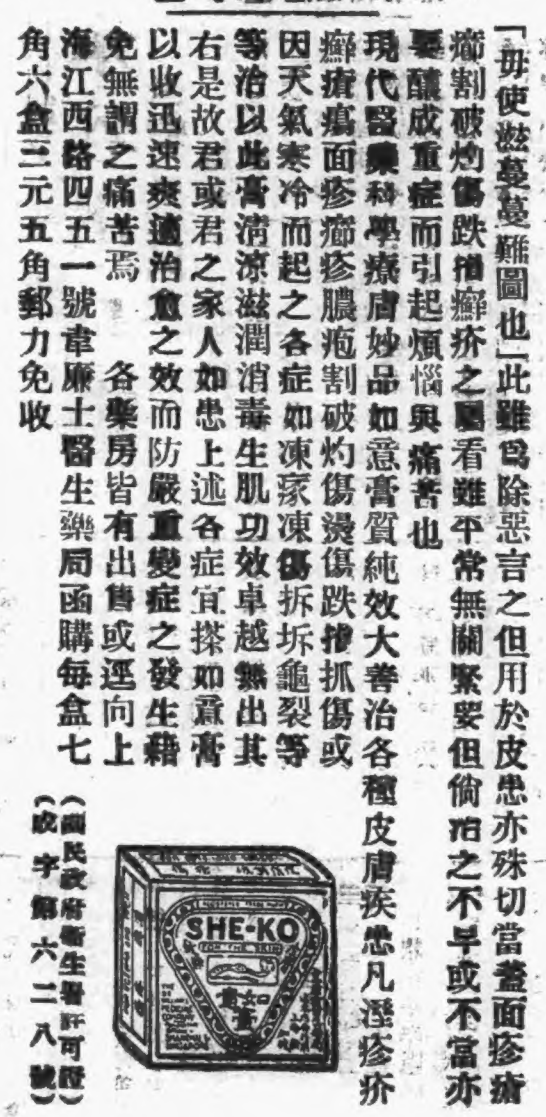 「毋使滋蔓蔓難圖也」此雖為除惡言之但用於皮患亦殊切當蓋面疹瘡
癤割破灼傷跌損癬疥之屬看雖平常無關緊要但倘治之不早或不當亦
要釀成重症而引起煩惱與痛苦也
現代醫藥科學療膚妙品如意膏質純效大善治各種皮膚疾患凡溼疹疥
癬瘡瘍面疹癤疹膿疱割破灼傷燙傷跌損抓傷或
因天氣寒冷而起之各症如凍瘃凍傷拆坼龜裂等
等治以此膏清涼滋潤消毒生肌功效卓越無出其
右是故君或君之家人如患上述各症宜搽如意膏
以收迅速爽適治愈之效而防嚴重變症之發生藉
免無謂之痛苦焉　各藥房皆有出售或逕向上
海江西路四五一號韋廉士醫生藥局函購每盒七
角六盒三元五角郵力免收
(國民政府衛生署許可證)
(成字第六二八號)
SHE-KO
FOR THE SKIN
如意膏